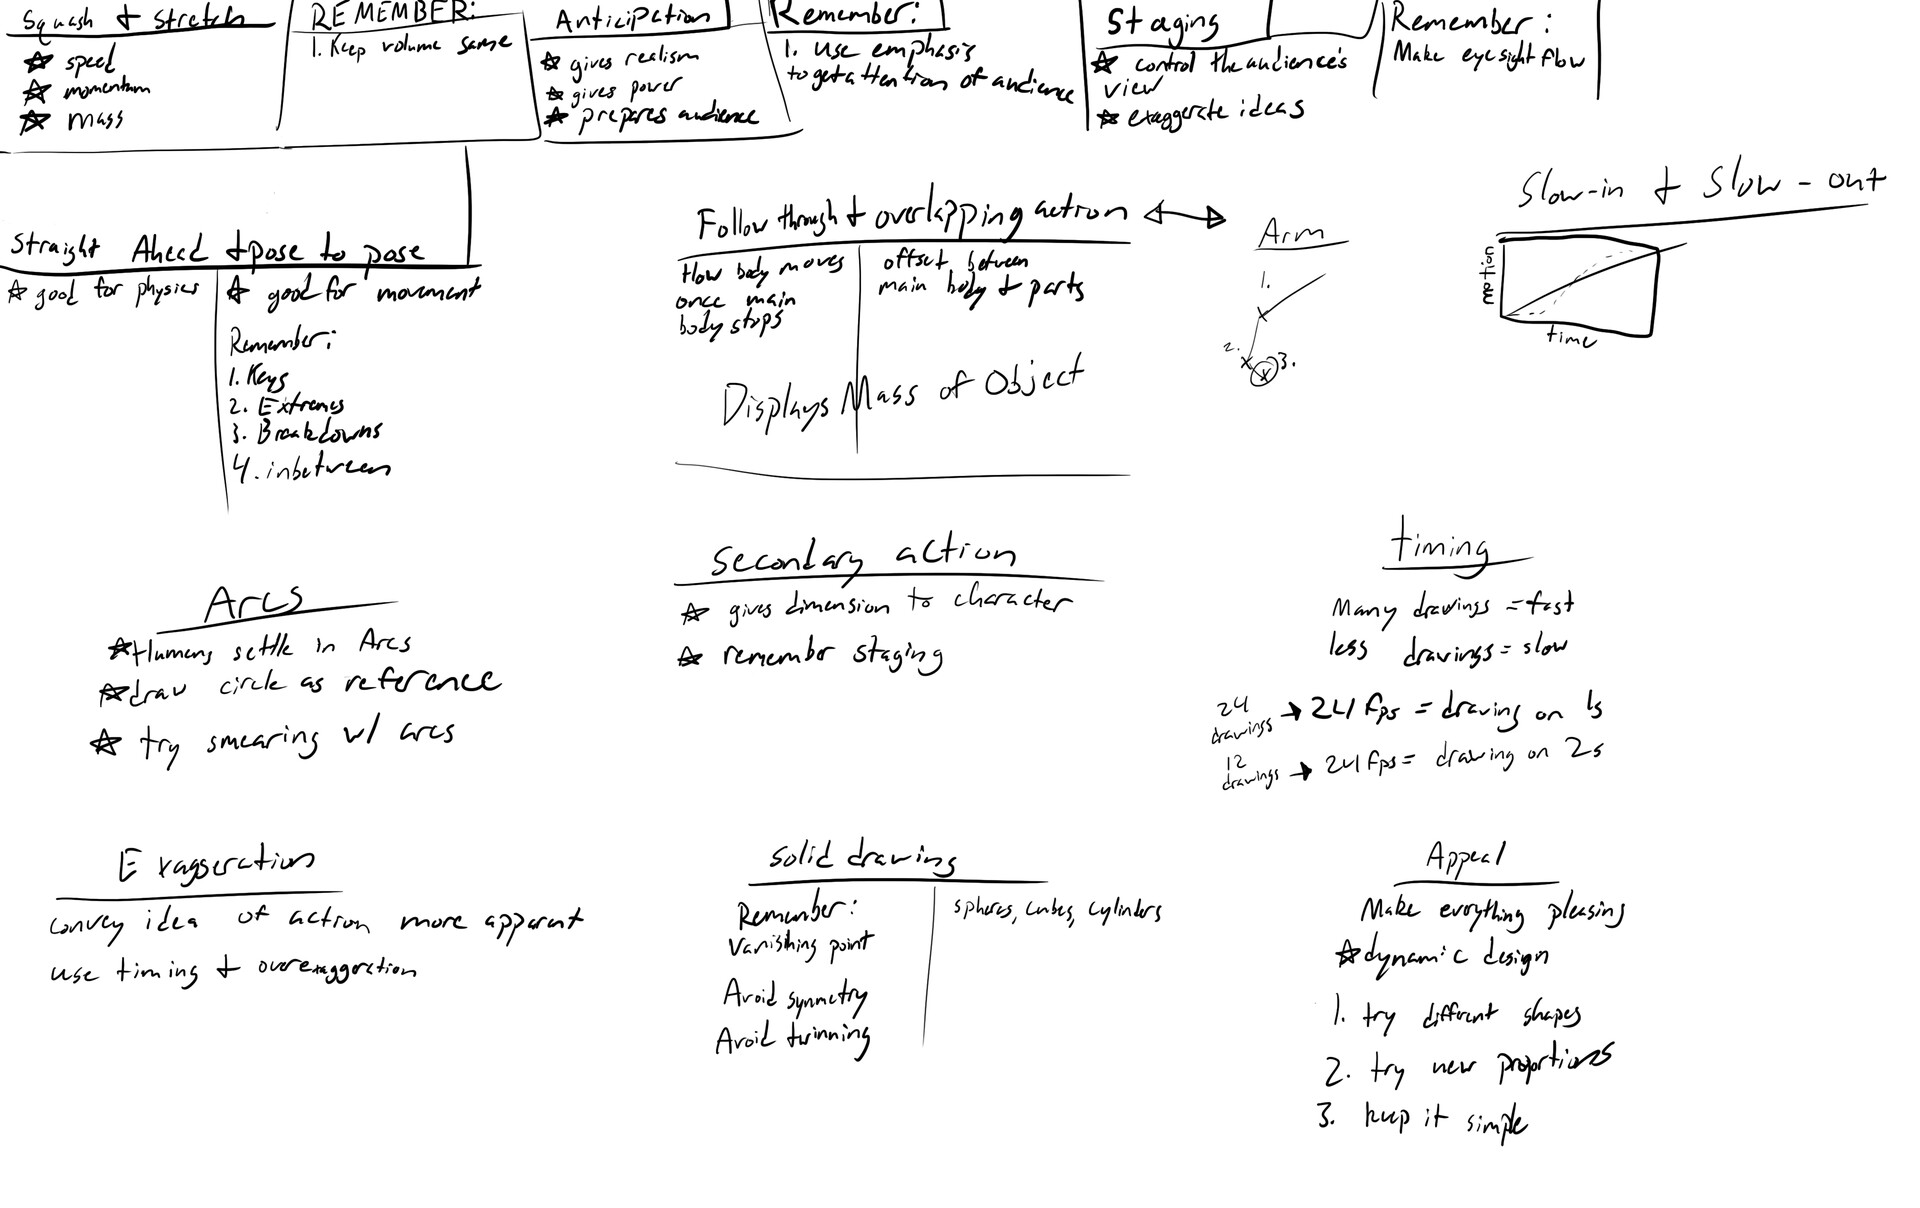 Squash & stretch
☆ speed
☆ momentum
☆ mass
REMEMBER:
1. Keep volume same
Anticipation
☆ gives realism
☆ gives power
☆ prepares audience
Remember:
1. use emphasis
to get attention of audience
Staging
☆ control the audience's
view
☆ exaggerate ideas
Remember:
Make eyesight flow
Straight Ahead & pose to pose
☆ good for physics
☆ good for movement
Remember:
1. Keys
2. Extremes
3. Breakdowns
4. inbetween
Follow through & overlapping action
How body moves
once main
body stops
offset between
main body & parts
Displays Mass of Object
Arm
1.
2.
3.
Slow-in & Slow-out
motion
time
Arcs
☆ Humans settle in Arcs
☆ draw circle as reference
☆ try smearing w/ arcs
Secondary action
☆ gives dimension to character
☆ remember staging
timing
Many drawings = fast
less drawings = slow
24
drawings → 24 fps = drawing on 1s
12
drawings → 24 fps = drawing on 2s
Exaggeration
convey idea of action more apparent
use timing & overexaggeration
Solid drawing
Remember:
Vanishing point
Avoid symmetry
Avoid twinning
spheres, cubes, cylinders
Appeal
Make everything pleasing
☆ dynamic design
1. try different shapes
2. try new proportions
3. keep it simple